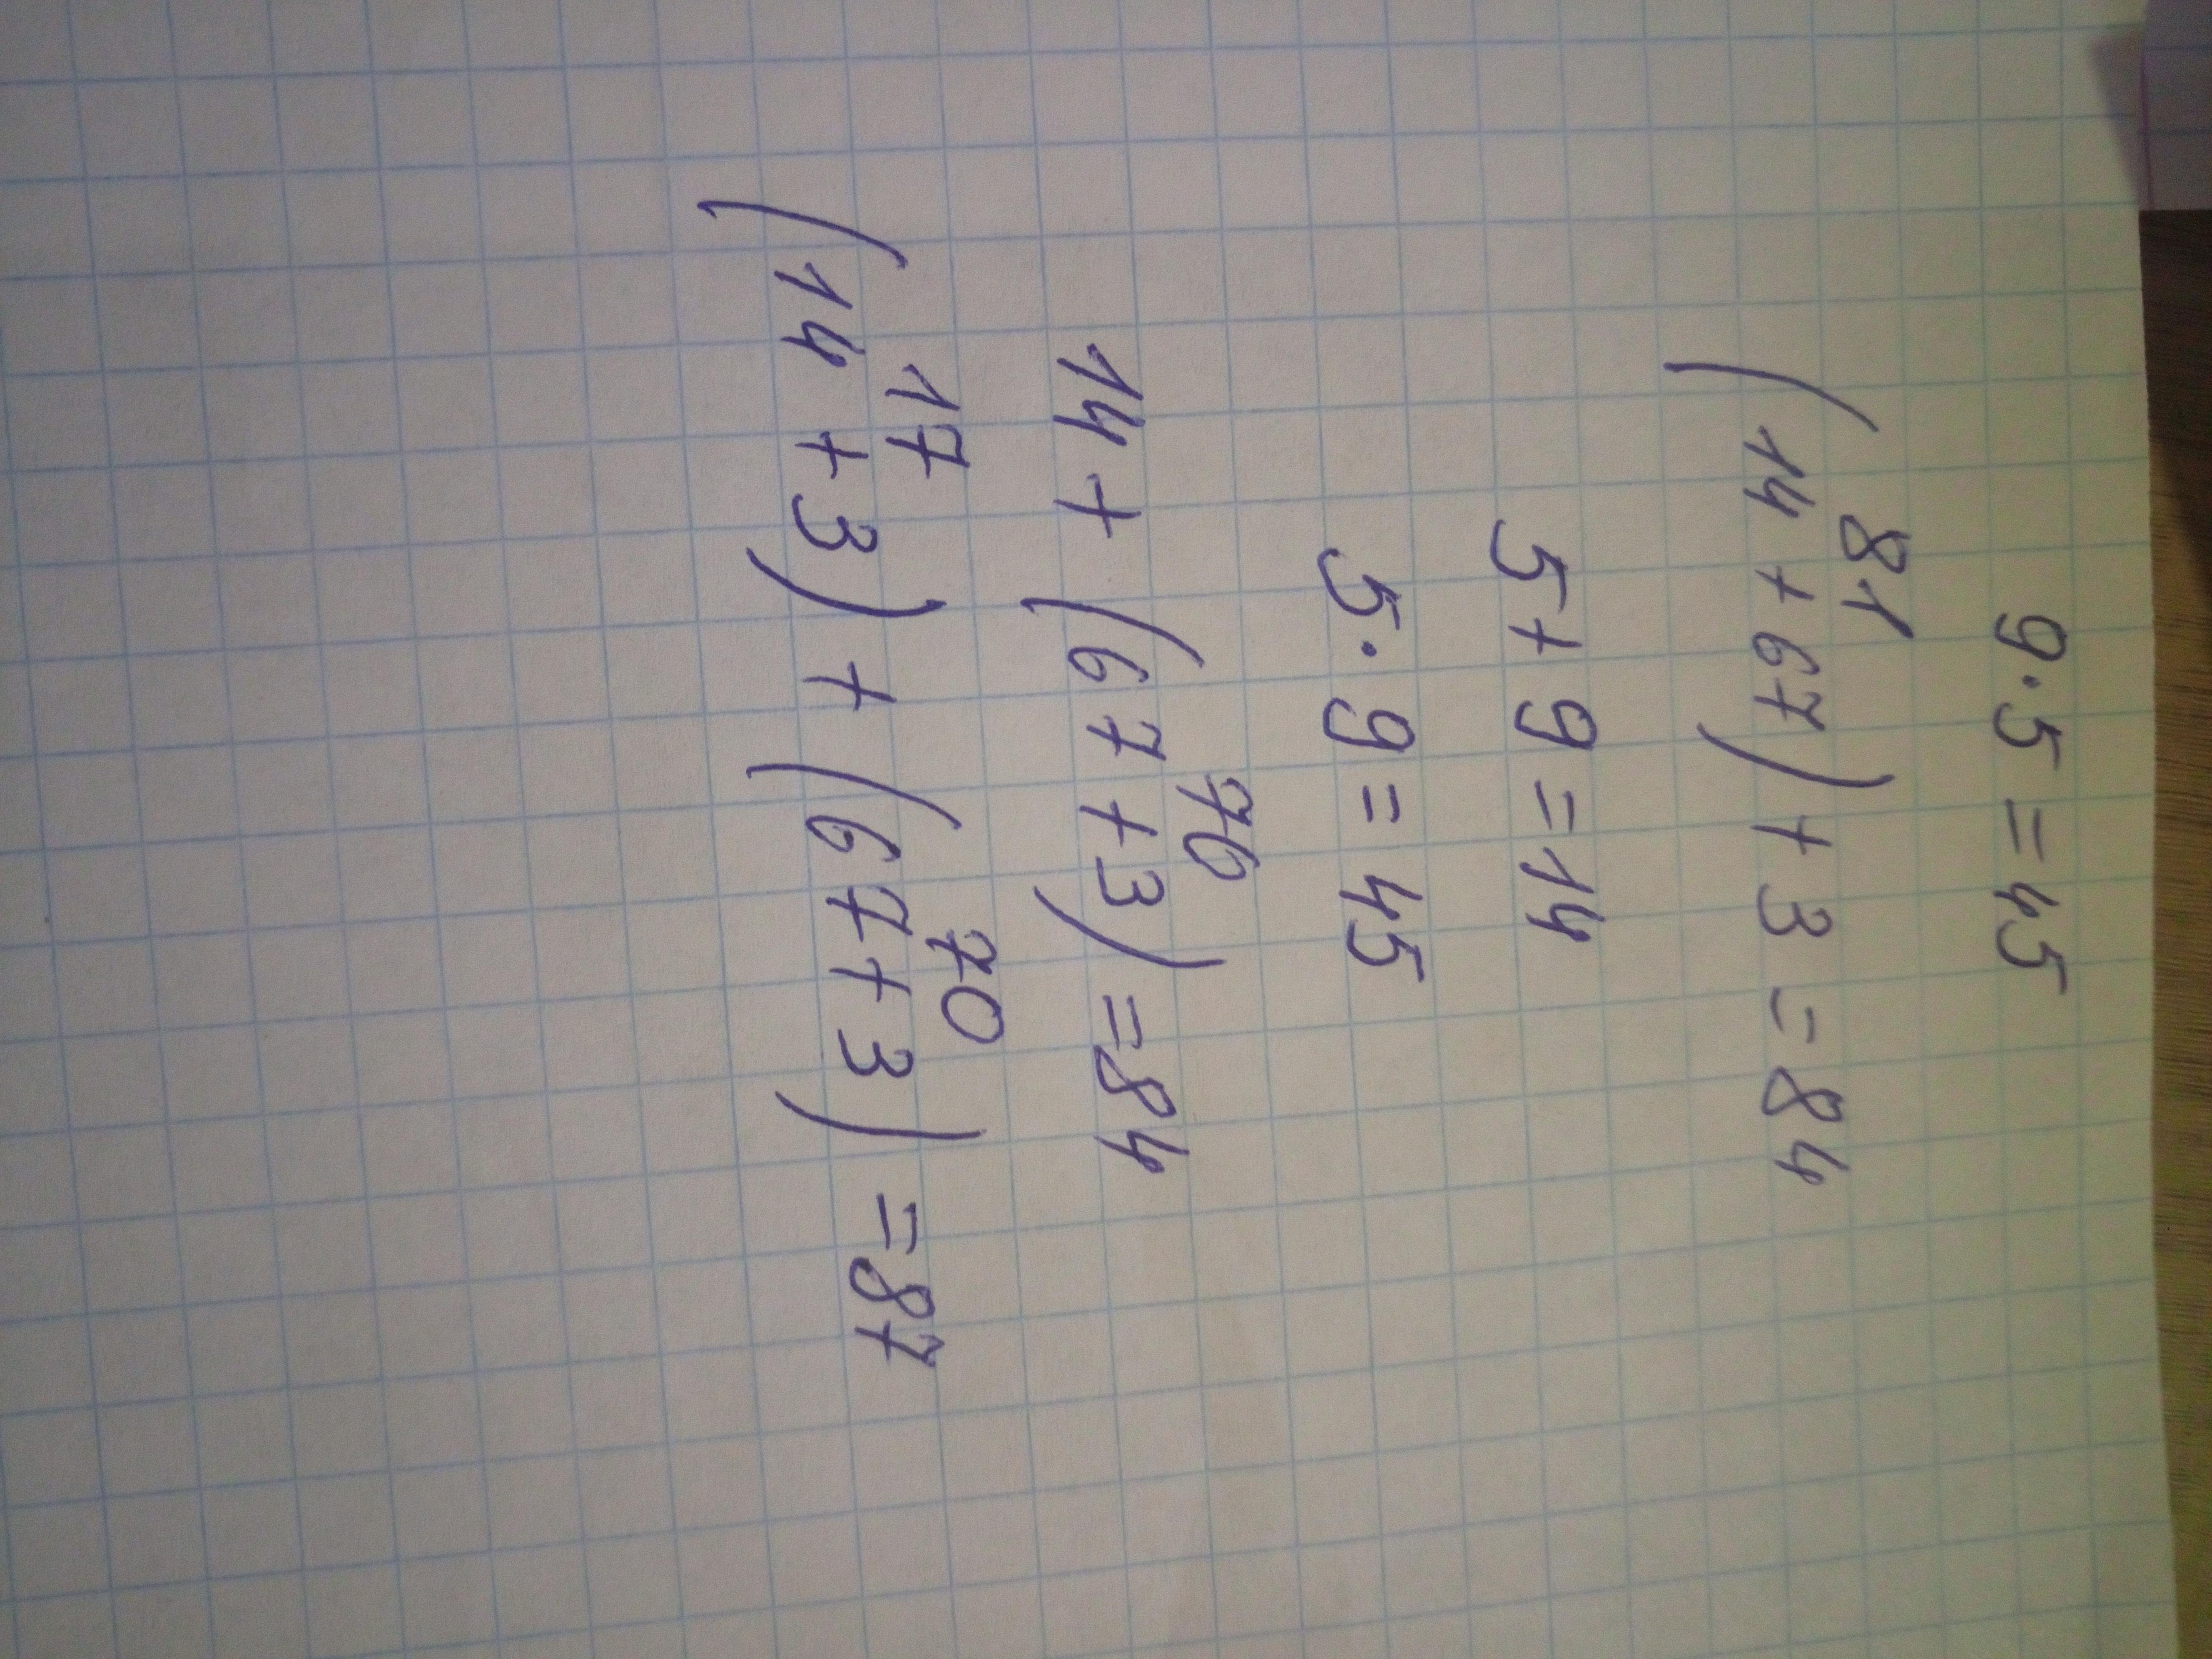 9·5=45
81
(14+67)+3=84
5+9=14
5·9=45
70
14+(67+3)=84
17 70
(14+3)+(67+3)=87